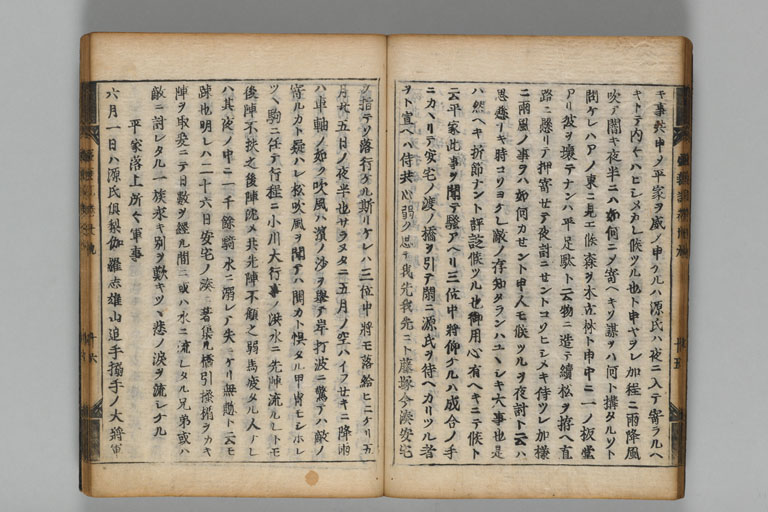 モ事共申ノ平家ヲ威ノ申ケルハ源氏ハ夜ニ入テ寄ラルヘ
キトテ内々ハヒシメカレ候ツル也ト申ヤヲレ加程ニ雨降風
吹テ闇キ夜半ニハ如何ニノ寄ヘキソ謀ヲハ何ト搆タルソト
問ケレハアノ東ニ見エ候森ヲ木古林ト申中ニ一ノ板堂
アリ彼ヲ壊テナンハ平足駄ト云物ニ造テ續松ヲ拵ヘ直
路ニ懸リテ押寄セテ夜討ニセントコソヒシメキ侍ツレ加樣
ニ雨風ノ事ヲハ如何カセント申人モ候ツルヲ夜討ト云ハ
思懸ナキ時コソヨケレ敵ノ存知タランハユヽシキ大事也是
ハ然ヘキ折節ナント評定候ツル也御用心有ヘキニテ候ト
云平家此事ヲ聞テ騒アヘリ三位中將仰ケルハ成合ノ手
ニカヽリテ安宅ノ渡ノ橋ヲ引テ閑ニ源氏ヲ待ヘカリツル者
ヲト宣ヘハ侍共心弱ク思テ我先我先ニト藤塚今湊安宅
ヲ指テソ落行ケル斯リケレハ三位中將モ落給ヒニケリ五
月廿五日ノ夜半也サラヌタニ五月ノ空ハイフセキニ降雨
ハ車軸ノ如ク吹風ハ濱ノ沙ヲ擧テ岸打波ニ驚テハ敵ノ
寄ルカト疑ハレ松吹風ヲ聞テハ鬨カト惧タル甲冑モシホレ
ツヽ駒ニ任テ行程ニ小川大行事ノ洪水ニ先陣流ルレトモ
後陣不扶之後陣沈メ共先陣不顧之弱馬疲タル人ナレ
ハ其夜ノ中ニ一千餘騎水ニ溺レテ失ニケリ無慙ト云モ
疎也明レハ二十六日安宅ノ湊ニ著渠ル橋引掻楯ヲカキ
陣ヲ取憂ニテ日數ヲ經ル間ニ或ハ水ニ流レタル兄弟或ハ
敵ニ討レタル一族泣キ別ヲ歎キツヽ悲ノ淚ヲ流シケル
平家落上所々軍事
六月一日ハ源氏倶梨伽羅志雄山追手搦手ノ大將軍